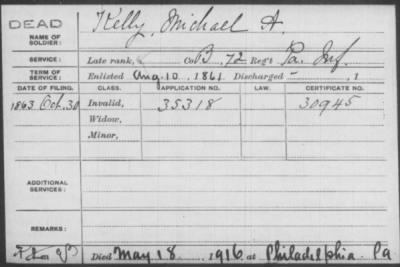 DEAD
NAME OF SOLDIER: Kelly, Michael A.
SERVICE: Late rank, Co. B, 72 Reg't Pa. Inf.
TERM OF SERVICE: Enlisted Aug. 10, 1861 Discharged - , 1
DATE OF FILING. CLASS. APPLICATION NO. LAW. CERTIFICATE NO.
1863 Oct. 30 Invalid, 35318 30945
Widow,
Minor,
ADDITIONAL SERVICES:
REMARKS:
Died May 18 1916 at Philadelphia Pa